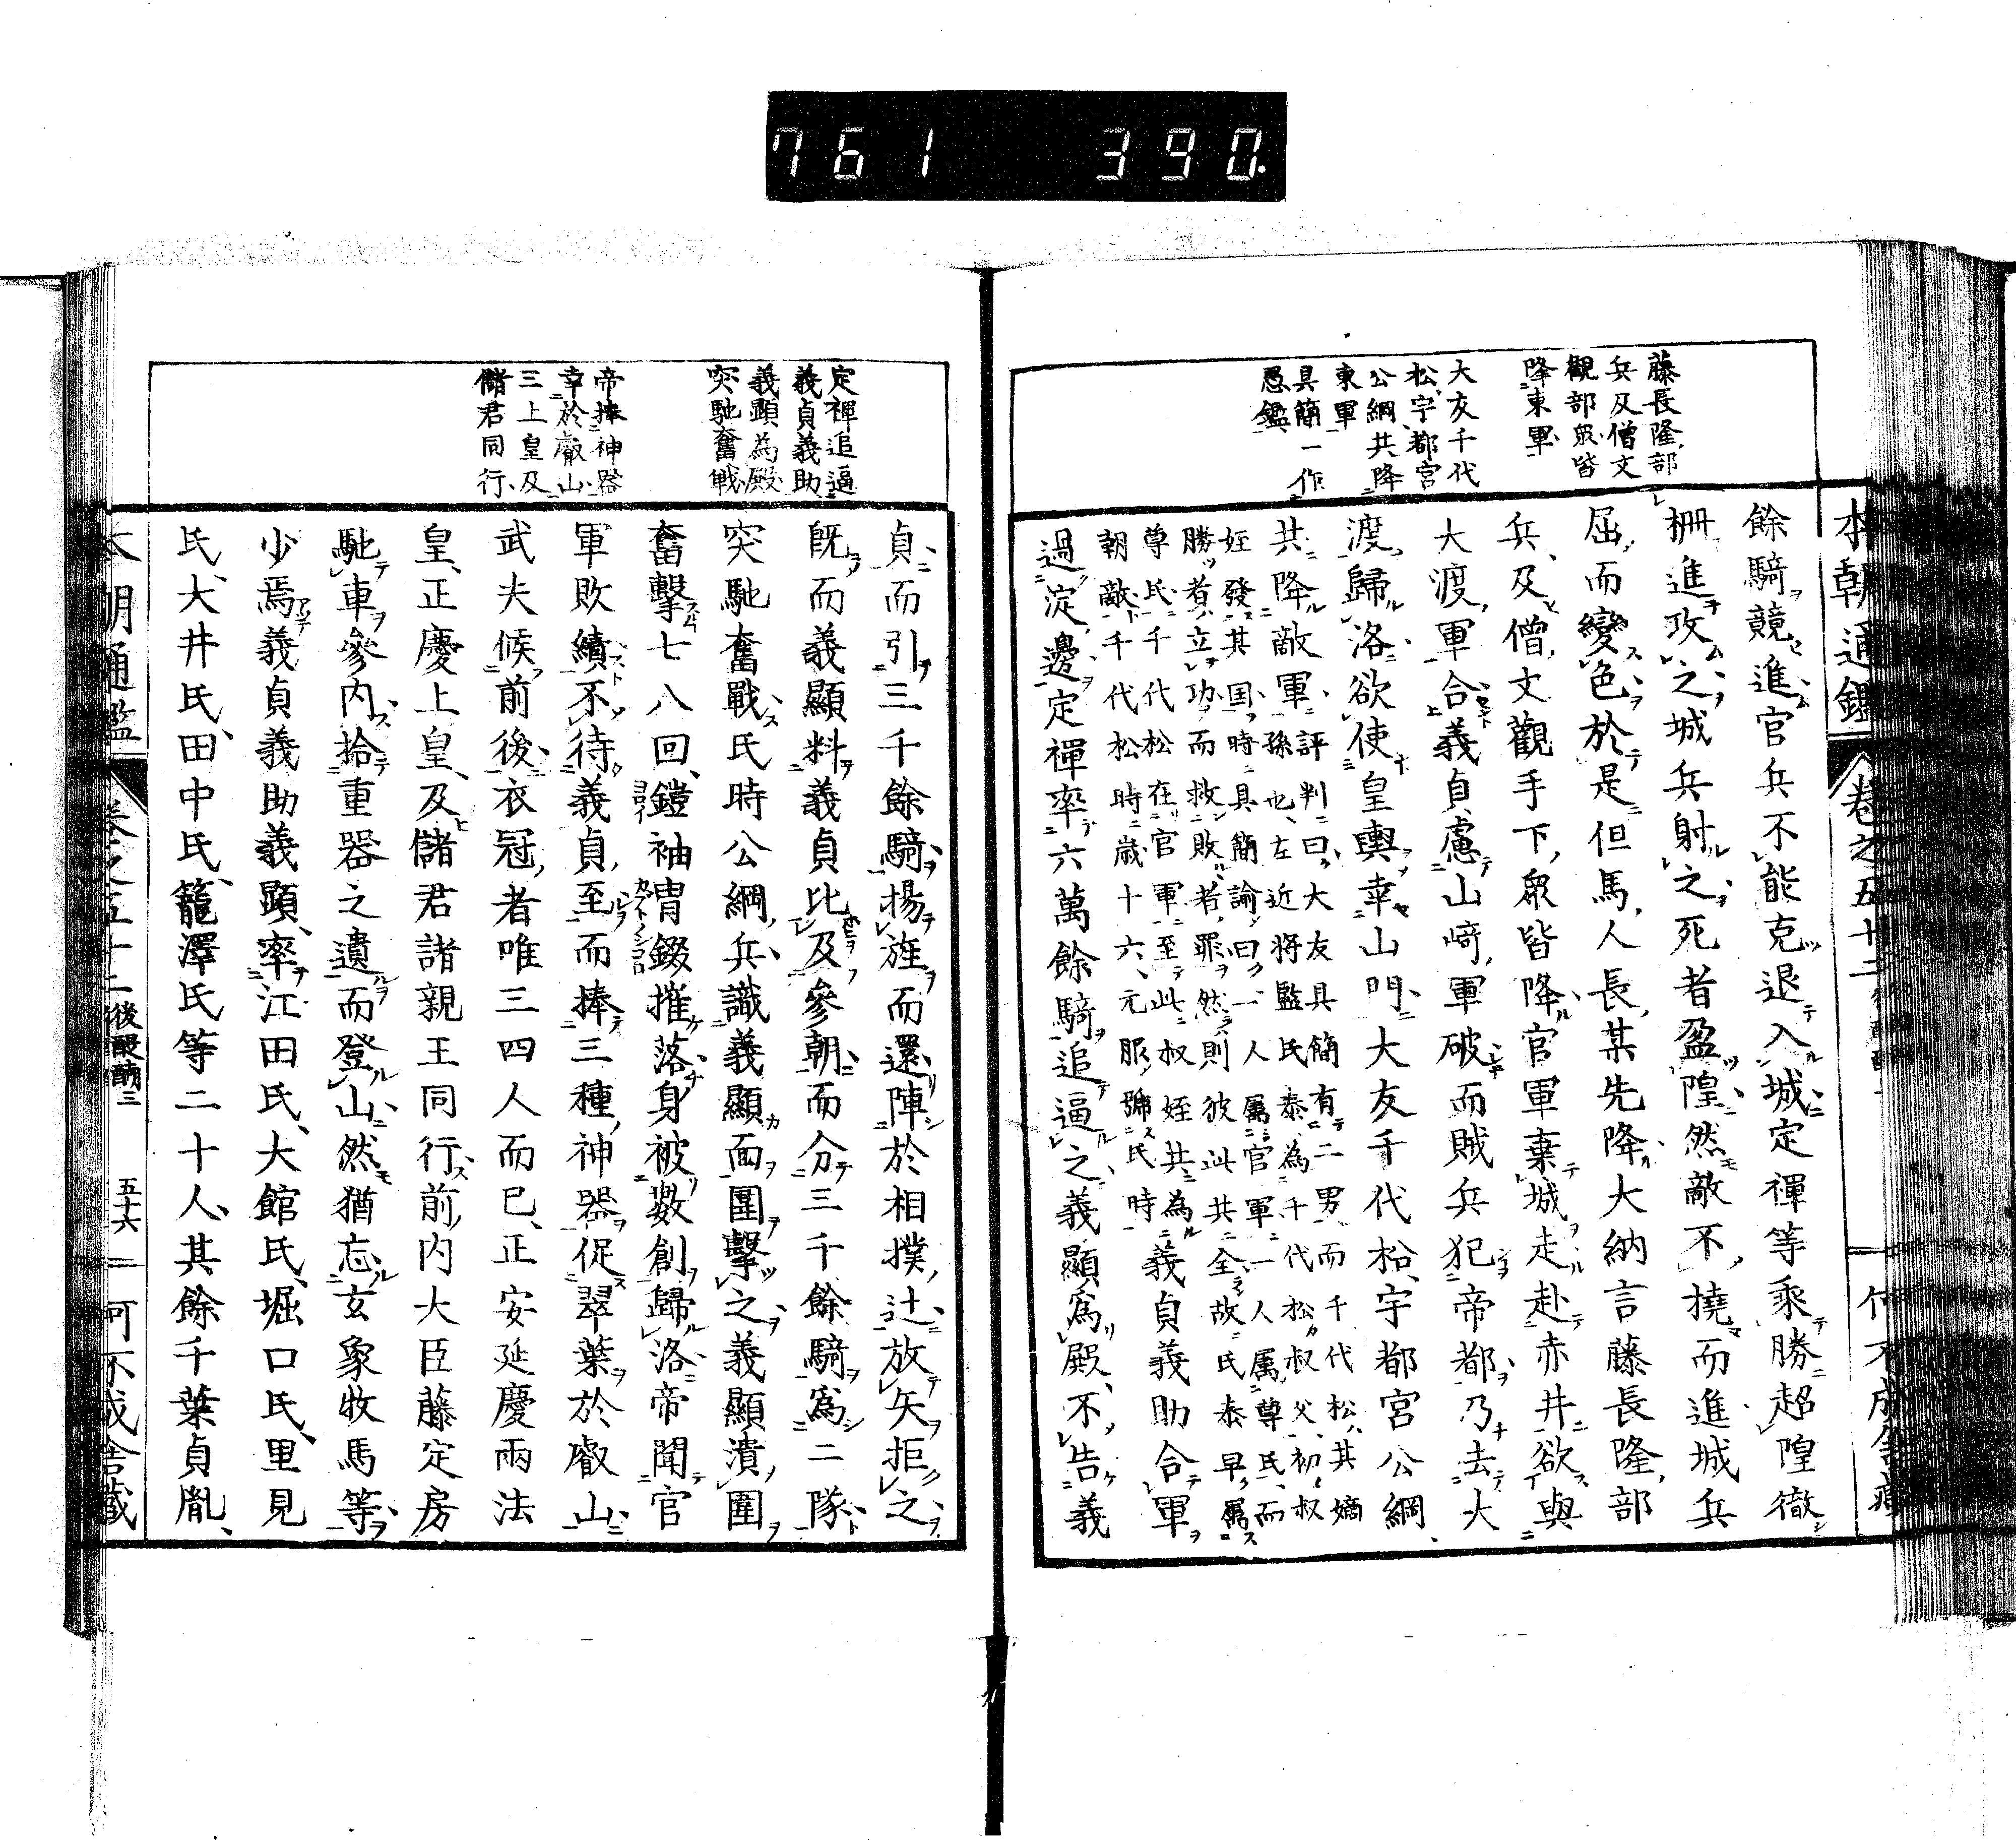 761 390.
本朝通鑑 卷之五十二
藤長隆部
兵及僧文
觀部衆皆
降東軍
大友千代
松宇都宮
公綱共降
東軍
具簡一作
愚鑑
餘騎競進官兵不能克退入城定禪等乘勝超隍徹
柵進攻之城兵射之死者盈隍然敵不撓而進城兵
屈而變色於是但馬人長某先降大納言藤長隆部
兵及僧文觀手下衆皆降官軍棄城走赴赤井欲與
大渡軍合義貞慮山崎軍破而賊兵犯帝都乃去大
渡歸洛欲使皇輿幸山門大友千代松宇都宮公綱
共降敵軍
評判曰大友具簡有二男而千代松其嫡
孫也左近將監氏泰為千代松叔父初叔
姪發其国時具簡諭曰一人属官軍一人属尊氏而
勝者立功而救敗者罪然則彼此共全故氏泰早属
尊氏千代松在官軍至此叔姪共為
朝敵千代松時歳十六元服號氏時
義貞義助合軍
過淀邊定禪率六萬餘騎追逼之義顯為殿不告義
定禪追逼
義貞義助
義顯為殿
突馳奮戰
帝捧神器
幸於叡山
三上皇及
儲君同行
貞而引三千餘騎揚旌而還陣於相撲辻放矢拒之
既而義顯料義貞比及參朝而分三千餘騎爲二隊
突馳奮戰氏時公綱兵識義顯面圍擊之義顯潰圍
奮擊七八回鎧袖冑錣摧落身被數創歸洛帝聞官
軍敗績不待義貞至而捧三種神器促翠葉於叡山
武夫候前後衣冠者唯三四人而已正安延慶兩法
皇正慶上皇及儲君諸親王同行前内大臣藤定房
馳車參内拾重器之遺而登山然猶忘玄象牧馬等
少焉義貞義助義顯率江田氏大館氏堀口氏里見
氏大井氏田中氏籠澤氏等二十人其餘千葉貞胤
本朝通鑑 卷之五十二 後醍醐三 五十六 可不成舍藏